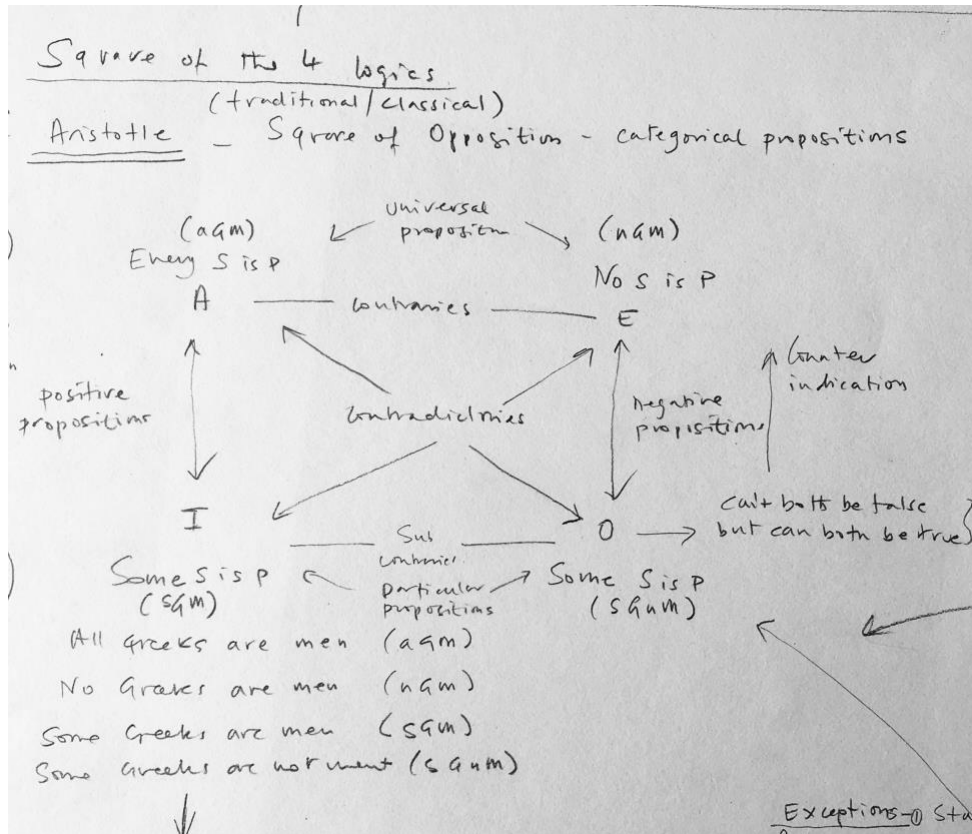 Square of the 4 logics
(traditional/classical)
Aristotle - Square of Opposition - categorical propositions
universal
proposition
(aGm)
(nGm)
Every S is P
No S is P
A
contraries
E
Counter
indication
positive
propositions
contradictories
negative
propositions
I
O
can't both be false
but can both be true}
Sub
contraries
Some S is P
Particular
propositions
Some S is P
(sGm)
(sGnm)
All Greeks are men (aGm)
No Greeks are men (nGm)
Some Greeks are men (sGm)
Some Greeks are not ment (sGnm)
Exceptions - ① Sta